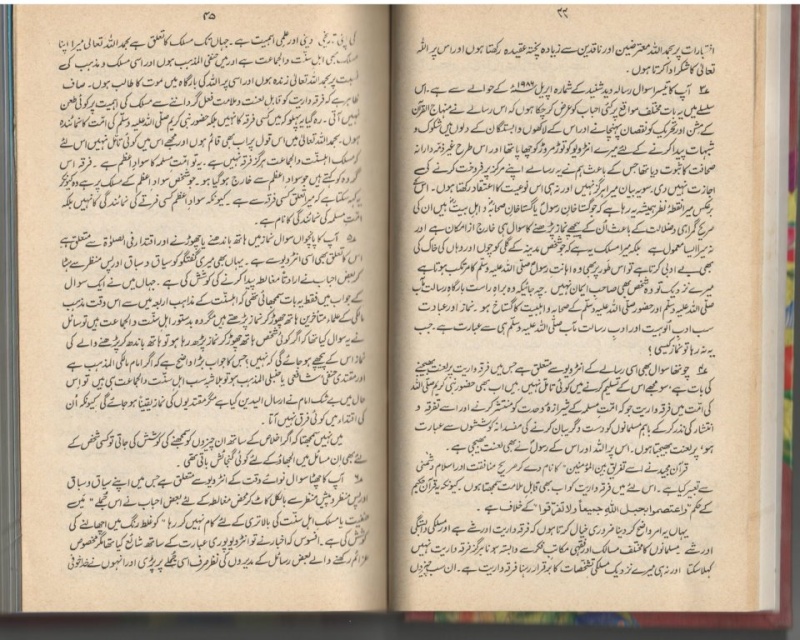 ۴۴
اختیارات پر بحمد اللہ معترضین اور ناقدین سے زیادہ پختہ عقیدہ رکھتا ہوں اور اس پر اللہ
تعالیٰ کا شکر ادا کرتا ہوں ۔
آپ کا تیسرا سوال رسالہ دید شنید کے شمارہ اپریل ۱۹۸۶ کے حوالے سے ہے ۔ اس
سلسلے میں یہ بات مختلف مواقع پر کئی احباب کو عرض کر چکا ہوں کہ اس رسالے نے منہاج القرآن
کے مشن اور تحریک کو نقصان پہنچانے اور اس کے لاکھوں وابستگان کے دلوں میں شکوک و
شبہات پیدا کرنے کے لئے میرے انٹرویو کو توڑ مروڑ کر چھاپا تھا اور اس طرح غیر ذمہ دارانہ
صحافت کا ثبوت دیا تھا جس کے باعث ہم نے یہ رسالے اپنے مرکز پر فروخت کرنے کی
اجازت نہیں دی ۔ سو یہ بیان میرا ہرگز نہیں اور نہ ہی اس نوعیت کا اعتقاد رکھتا ہوں ۔ اس کے
برعکس میرا نقطۂ نظر ہمیشہ یہ رہا ہے کہ جو گستاخان رسولؐ یا گستاخان صحابہؓ و اہل بیتؓ ہیں ان کی
صریح گمراہی و ضلالت کے باعث ان کے پیچھے نماز پڑھنے کا سوال ہی خارج از امکان ہے اور
نہ میرا ایسا معمول ہے بلکہ میرا مسلک یہ ہے کہ جو شخص مدینہ کے گلی کوچوں اور وہاں کی خاک کی
بھی بے ادبی کرتا ہے تو اس طور پر بھی وہ اہانت رسول صلی اللہ علیہ وسلم کا مرتکب ہوتا ہے
میرے نزدیک تو وہ شخص بھی صاحب ایمان نہیں ۔ چہ جائیکہ وہ براہ راست بارگاہ رسالت مآب
صلی اللہ علیہ وسلم اور حضور صلی اللہ علیہ وسلم کے صحابہ و اہلبیت کا گستاخ ہو ۔ نماز اور عبادت
سب ادب الوہیت اور ادب رسالت مآب صلی اللہ علیہ وسلم ہی سے عبارت ہے ۔ جب
یہ نہ رہا تو نماز کیسی ؟
چوتھا سوال بھی اسی رسالے کے انٹرویو سے متعلق ہے جس میں فرقہ واریت پر لعنت بھیجنے
کی بات ہے ، سو مجھے اس کے تسلیم کرنے میں کوئی تامل نہیں ۔ میں اب بھی حضور نبی کریم صلی اللہ
کی امت میں فرقہ واریت جو کہ امت مسلمہ کے شیرازۂ وحدت کو منتشر کرنے اور اسے تفرقہ و
انتشار کی نذر کر کے باہم مسلمانوں کو دست و گریبان کرنے کی مفسدانہ کوششوں سے عبارت
ہو ، پر لعنت بھیجتا ہوں ۔ اس پر اللہ اور اس کے رسولؐ نے بھی لعنت بھیجی ہے ۔
قرآن مجید نے اسے تفریق بین المؤمنین ” کا نام دے کر صریح منافقت اور اسلام دشمنی
سے تعبیر کیا ہے ۔ اس لئے میں فرقہ واریت کو اب بھی قابل ملامت سمجھتا ہوں ۔ کیونکہ یہ قرآن حکیم
کے حکم ”واعتصموا بحبل اللہ جمیعاً ولا تفرقوا“ کے خلاف ہے ۔
یہاں یہ امر واضح کر دینا ضروری خیال کرتا ہوں کہ فرقہ واریت اور شے ہے اور مسلکی وابستگی
اور شے ۔ مسلمانوں کا مختلف مسالک اور فقہی مکاتب فکر سے وابستہ ہونا ہرگز فرقہ واریت نہیں
کہلا سکتا اور نہ ہی میرے نزدیک مسلکی تشخصات کا برقرار رہنا فرقہ واریت ہے ۔ ان سب چیزوں
۴۵
کی اپنی تاریخی دینی اور علمی اہمیت ہے ۔ جہاں تک مسلک کا تعلق ہے بحمد اللہ تعالیٰ میرا اپنا
مسلک بھی اہل سنت والجماعت ہے اور میں حنفی المذہب ہوں اور اسی مسلک و مذہب کی
پر بحمد اللہ تعالیٰ زندہ ہوں اور اسی پر اللہ کی بارگاہ میں موت کا طالب ہوں ۔ صاف
ظاہر ہے کہ فرقہ واریت کو قابل لعنت و ملامت فعل گرداننے سے مسلک کی اہمیت پر کوئی طعن
نہیں آتی ۔ رہ گیا یہ پہلو کہ میں کسی فرقہ کا نہیں بلکہ حضور نبی کریم صلی اللہ علیہ وسلم کی امت کا نمائندہ
ہوں ۔ بحمد اللہ تعالیٰ میں اس قول پر اب بھی قائم ہوں اور مجھے اس میں کوئی تامل نہیں اس لئے
کہ مسلک اہلسنت والجماعت ہرگز فرقہ نہیں ہے ۔ یہ تو امت مسلمہ کا سواد اعظم ہے ۔ فرقہ اس
گروہ کو کہتے ہیں جو سواد اعظم سے خارج ہو گیا ہو ۔ جو شخص سواد اعظم کے مسلک پر ہے وہ کیونکر
یہ کہہ سکتا ہے کہ میرا تعلق کسی فرقے سے ہے ۔ کیونکہ سواد اعظم کسی فرقے کی نمائندگی کا نہیں بلکہ
امت مسلمہ کی نمائندگی کا نام ہے ۔
آپ کا پانچواں سوال نماز میں ہاتھ باندھنے یا چھوڑنے اور اقتداء فی الصلوٰۃ سے متعلق ہے
اس کا تعلق بھی اسی انٹرویو سے ہے ۔ یہاں بھی میری گفتگو کو سیاق و سباق اور پس منظر سے ہٹا
کر بعض احباب نے ارادتاً مغالطہ پیدا کرنے کی کوشش کی ہے ۔ جہاں میں نے ایک سوال
کے جواب میں فقط یہ بات سمجھائی تھی کہ اہلسنت کے مذاہب اربعہ میں سے اس وقت مذہب
مالکی کے علماء متاخرین ہاتھ چھوڑ کر نماز پڑھتے ہیں مگر وہ بدستور اہل سنت والجماعت ہیں تو سائل
نے یہ سوال کیا تھا کہ اگر کوئی شخص ہاتھ چھوڑ کر نماز پڑھ رہا ہو تو ہاتھ باندھ کر پڑھنے والے کی
نماز اس کے پیچھے ہو جائے گی کہ نہیں ؟ جس کا جواب بڑا واضح ہے کہ اگر امام مالکی المذہب ہے
اور مقتدی حنفی شافعی یا حنبلی المذہب ہو تو بلاشبہ سب اہل سنت والجماعت ہی ہیں تو اس
حال میں بے شک امام نے ارسال الیدین کیا ہے مگر مقتدیوں کی نماز یقیناً ہو جائے گی کیونکہ اُن
کی اقتداء میں کوئی فرق نہیں آتا ۔
میں نہیں سمجھتا کہ اگر اخلاص کے ساتھ ان چیزوں کو سمجھنے کی کوشش کی جاتی تو کسی شخص کے
لئے بھی ان مسائل میں الجھاؤ کے لئے کوئی گنجائش باقی تھی ۔
آپ کا چھٹا سوال نوائے وقت کے انٹرویو سے متعلق ہے جس میں اپنے سیاق و سباق
اور پس منظر و پیش منظر سے بالکل کاٹ کر محض مغالطے کے لئے بعض احباب نے اس جملے ” میں
حنفیت یا مسلک اہل سنت کی بالاتری کے لئے کام نہیں کر رہا “ کو غلط رنگ میں اچھالنے کی
کوشش کی ہے ۔ افسوس کہ اخبار نے تو انٹرویو پوری عبارت کے ساتھ شائع کیا تھا مگر مخصوص
عزائم رکھنے والے بعض رسائل کے مدیروں کی نظر صرف اسی جملے پر پڑی اور انہوں نے